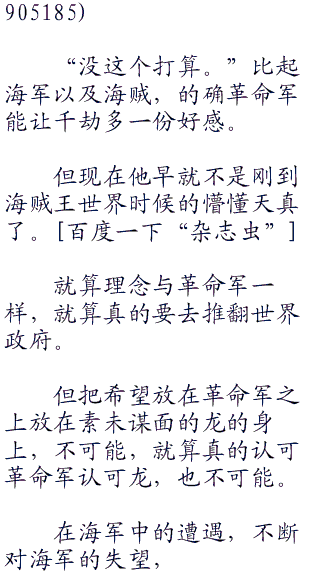 905185)
“没这个打算。”比起
海军以及海贼，的确革命军
能让千劫多一份好感。
但现在他早就不是刚到
海贼王世界时候的懵懂天真
了。[百度一下“杂志虫”]
就算理念与革命军一
样，就算真的要去推翻世界
政府。
但把希望放在革命军之
上放在素未谋面的龙的身
上，不可能，就算真的认可
革命军认可龙，也不可能。
在海军中的遭遇，不断
对海军的失望，